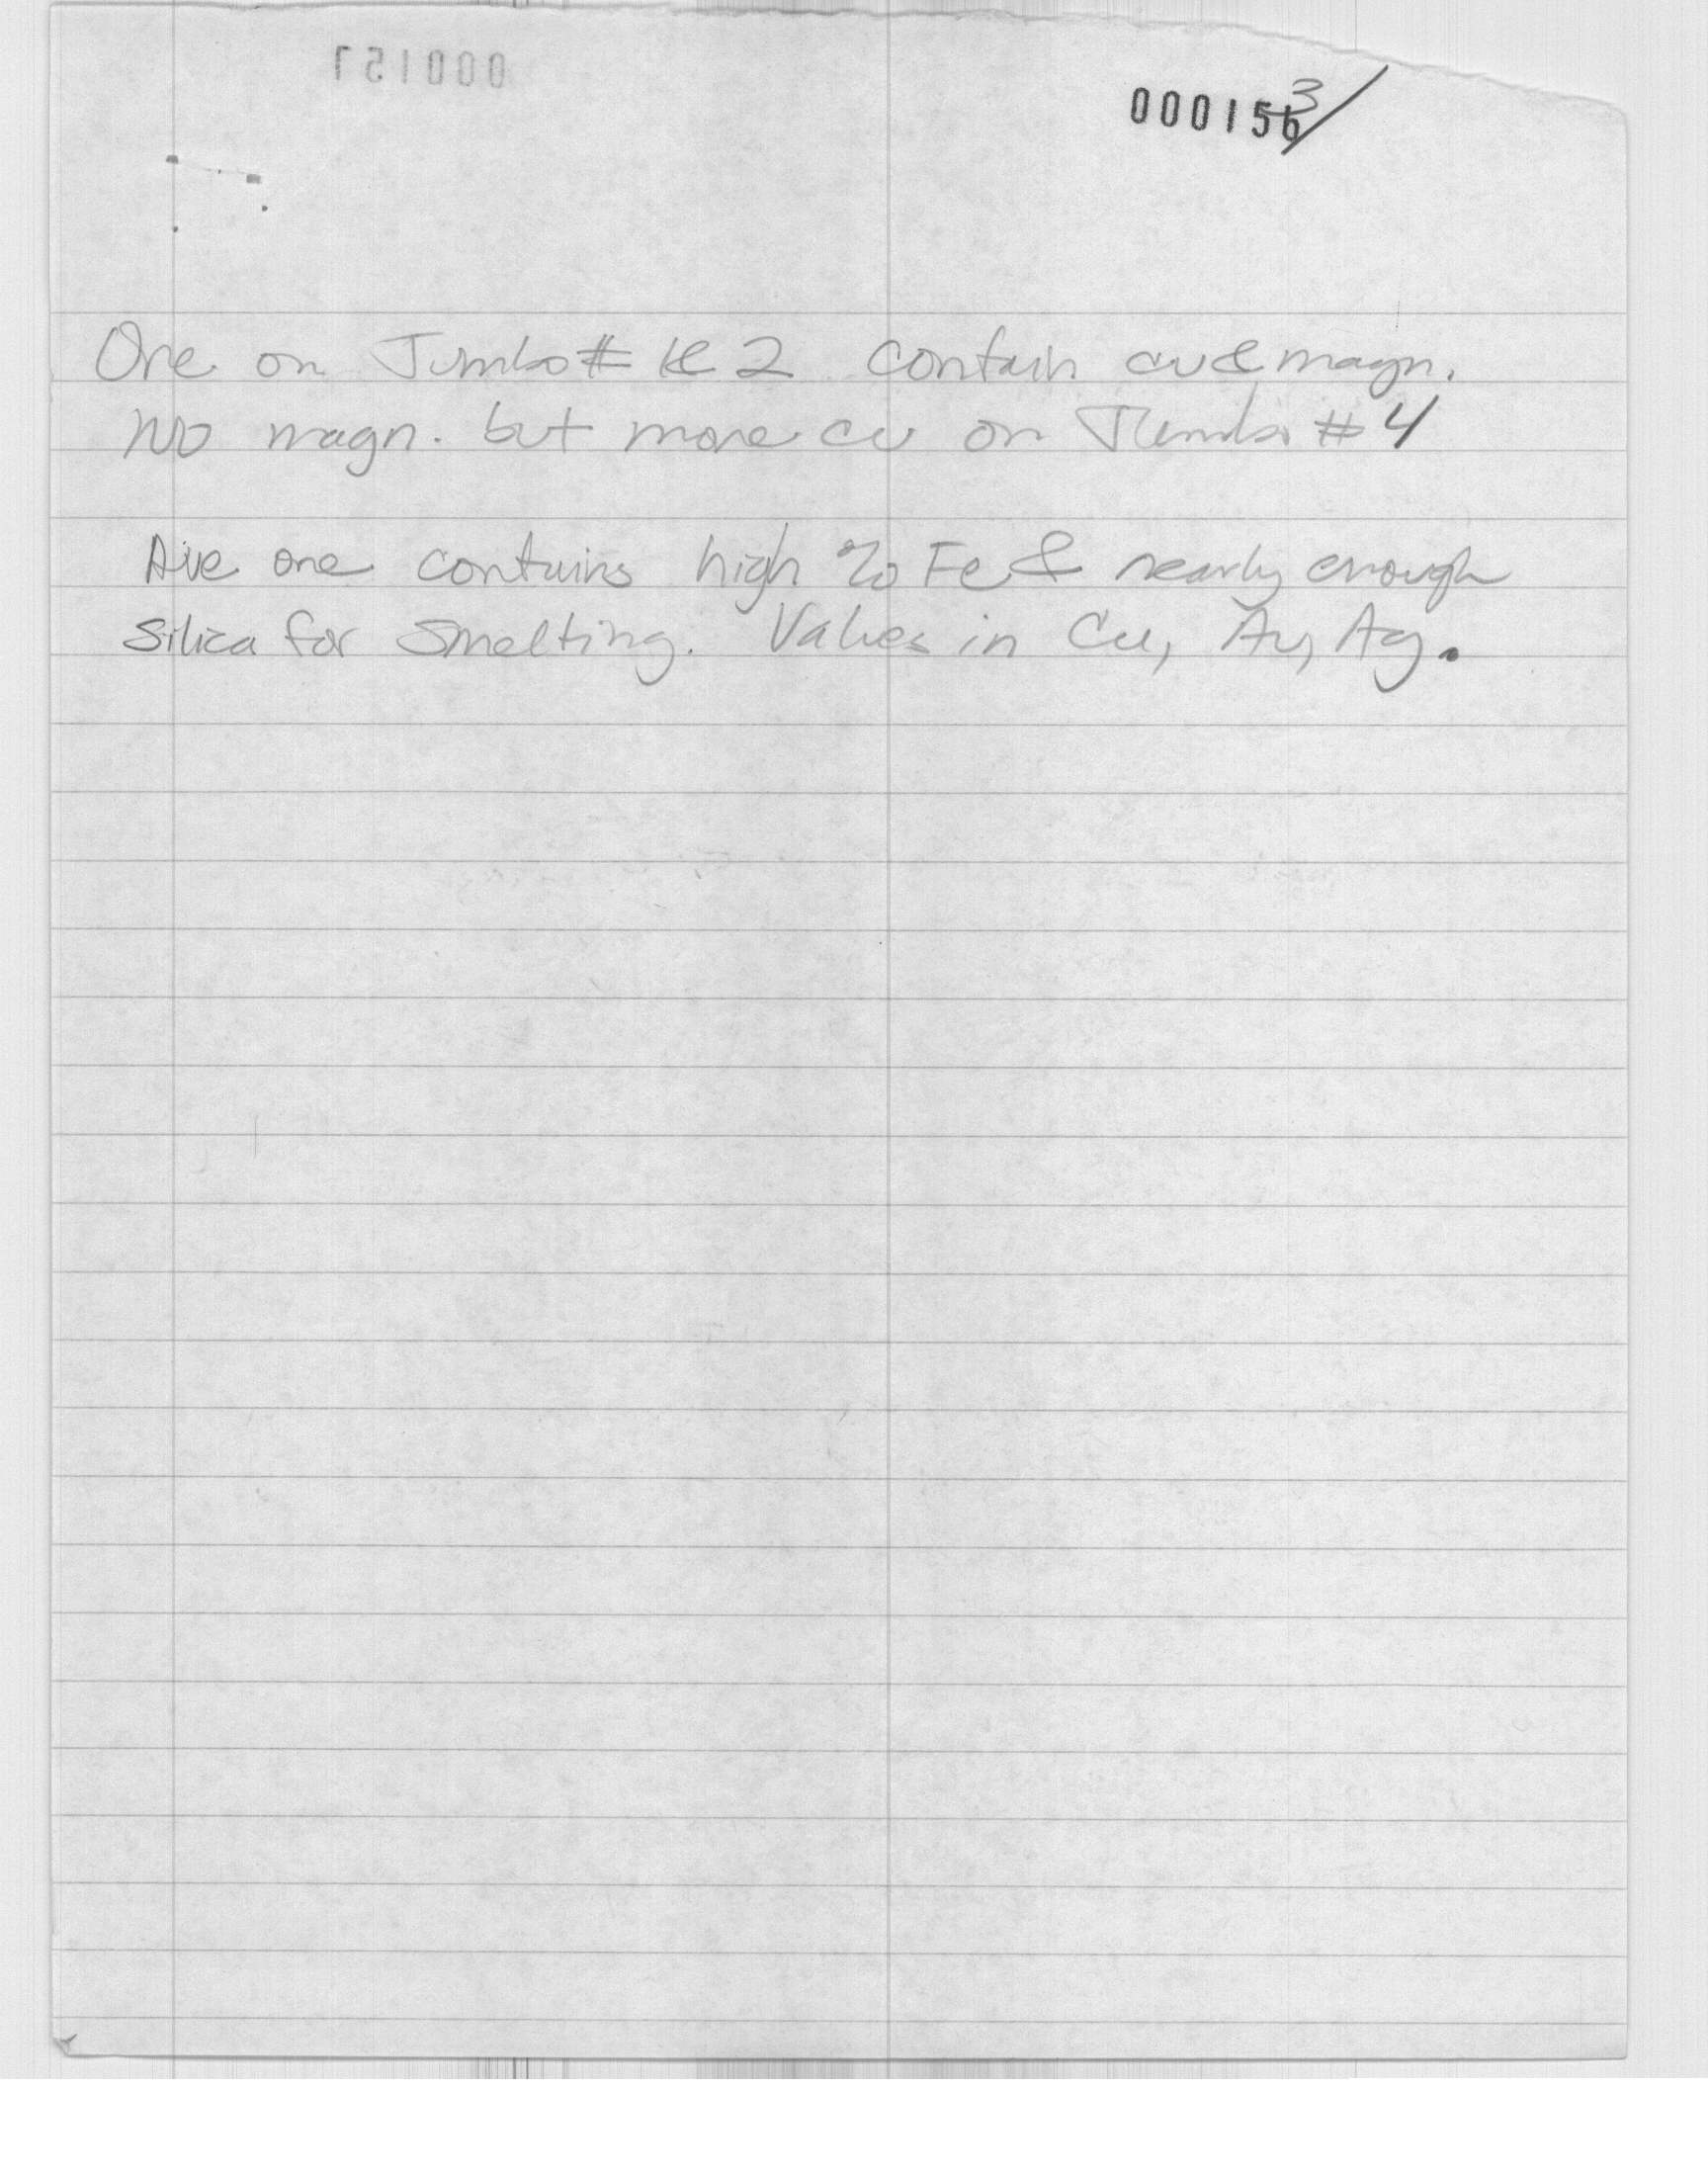 000157
0001563/
Ore on Jumbo # 1 & 2 contain cu & magn.
No magn. but more cu on Jumbo # 4
Ave ore contains high % Fe & nearly enough
Silica for Smelting. Values in Cu, Au, Ag.